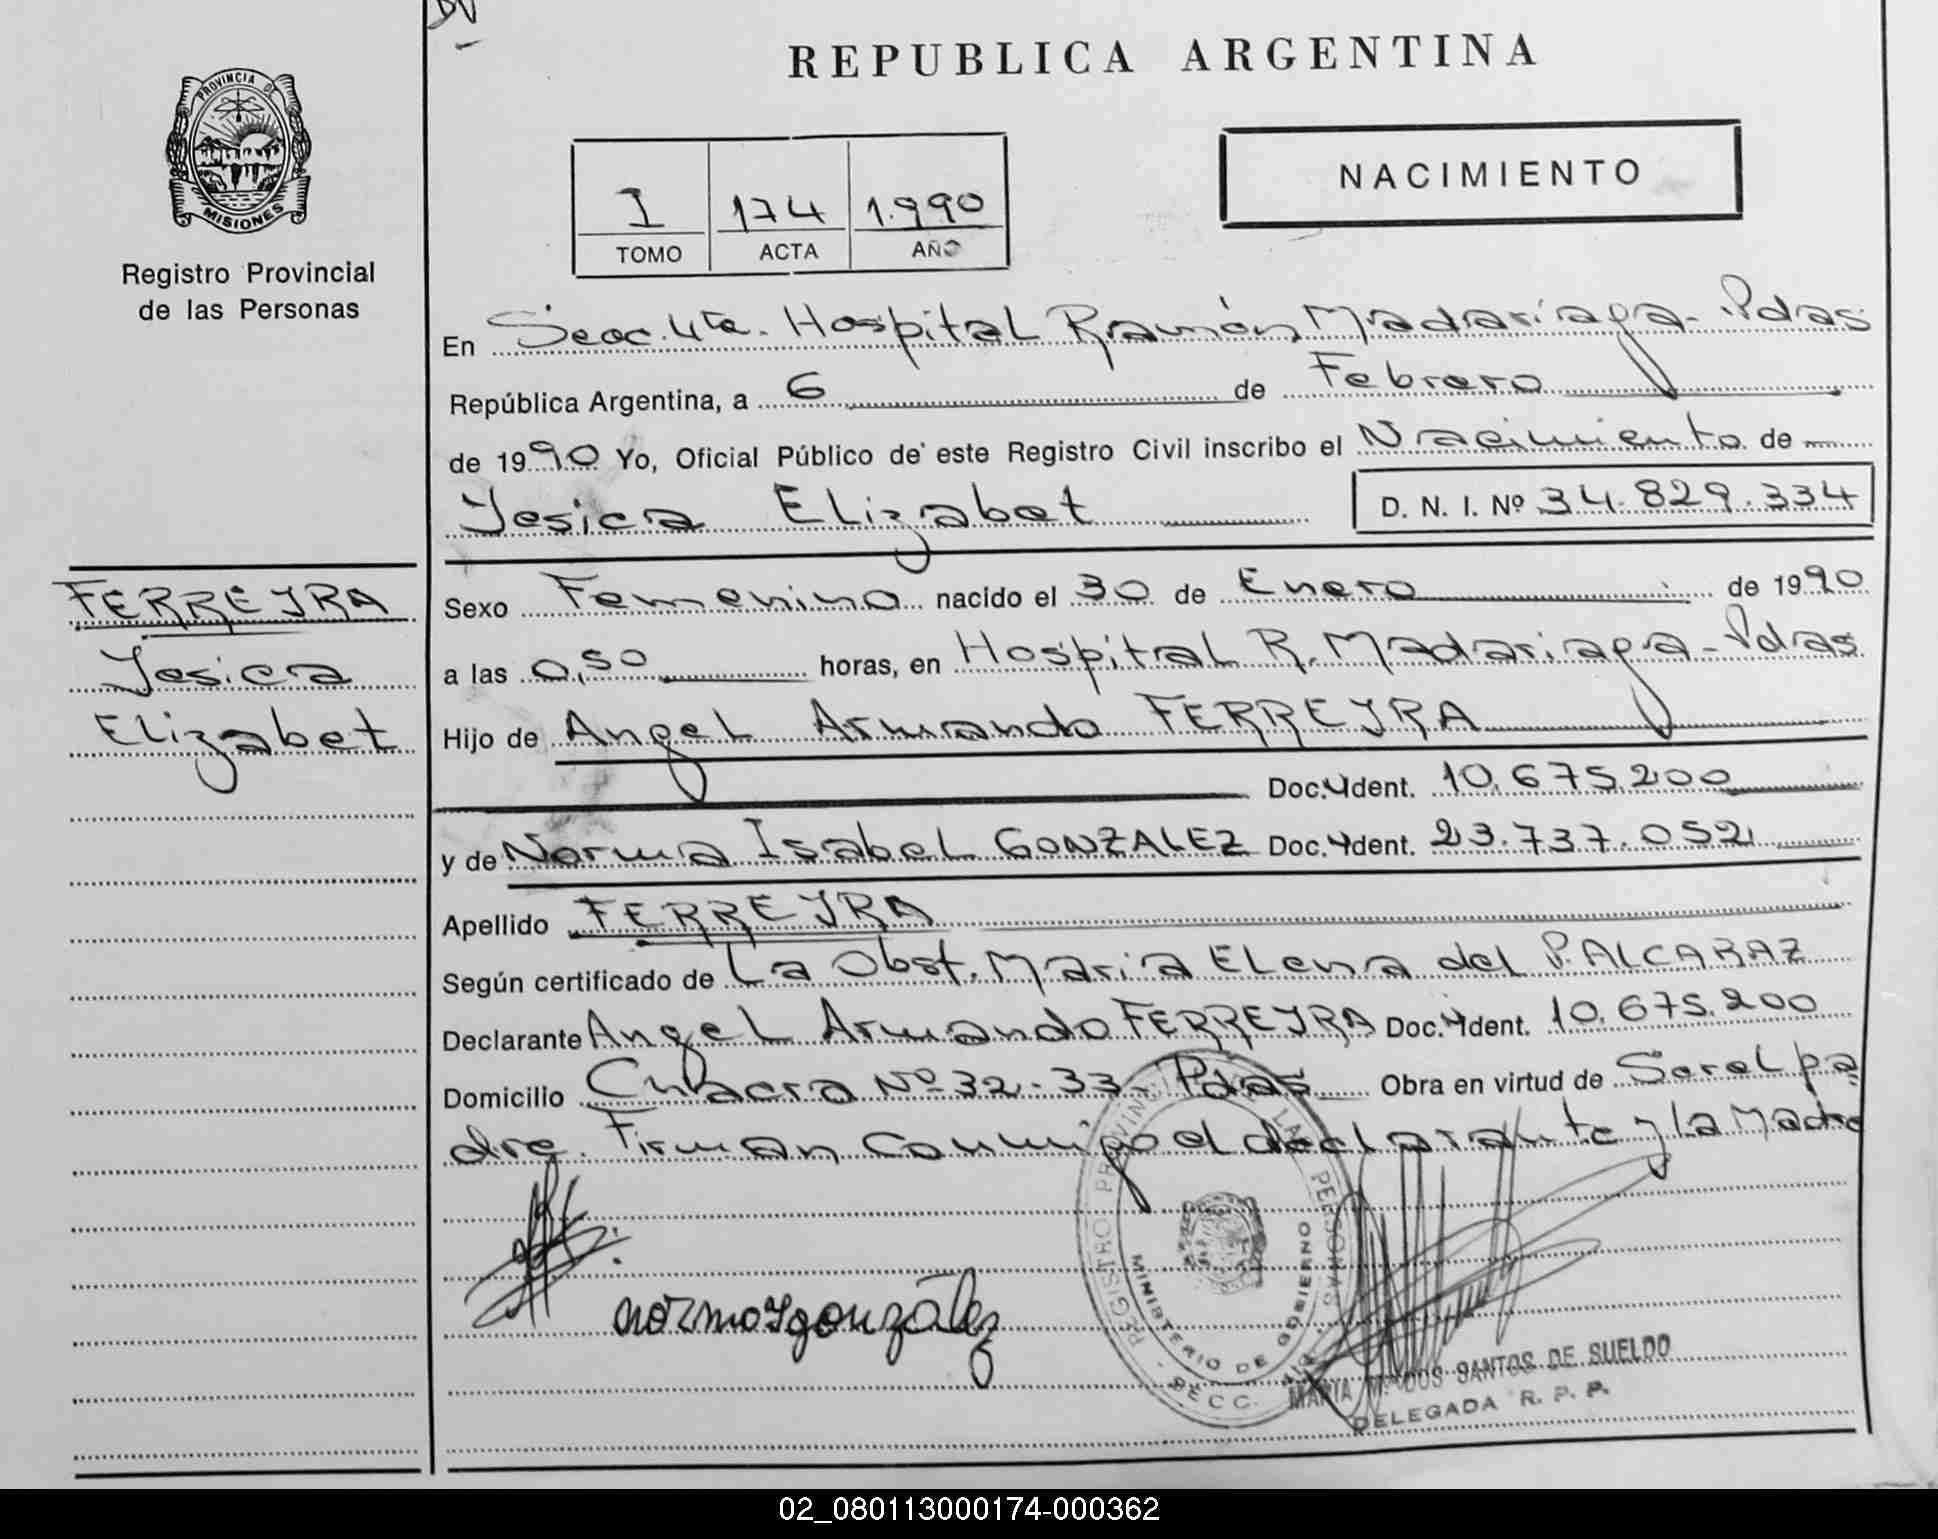 REPUBLICA ARGENTINA
PROVINCIA DE
MISIONES
Registro Provincial
de las Personas
NACIMIENTO
I 174 1.990
TOMO ACTA AÑO
En Secc. 4ta. Hospital Ramón Madariaga - Pdas
República Argentina, a 6 de Febrero
de 1990 Yo, Oficial Público de este Registro Civil inscribo el Nacimiento de
Yesica Elizabet D. N. I. Nº 34.829.334
FERREYRA
Yesica
Elizabet
Sexo Femenino nacido el 30 de Enero de 1990
a las 0,50 horas, en Hospital R. Madariaga - Pdas
Hijo de Angel Armando FERREYRA
Doc. Ident. 10.675.200
y de Norma Isabel GONZALEZ Doc. Ident. 23.737.052
Apellido FERREYRA
Según certificado de La Obst. Maria Elena del P. ALCARAZ
Declarante Angel Armando FERREYRA Doc. Ident. 10.675.200
Domicilio Chacra Nº 32-33 - Pdas Obra en virtud de Ser el pa
dre. Firman conmigo el declarante y la Madre
norma y gonzález
REGISTRO PROVINCIAL DE LAS PERSONAS
MINISTERIO DE GOBIERNO
SECC. 4ta
MARIA M. DOS SANTOS DE SUELDO
DELEGADA R. P. P.
02_080113000174-000362